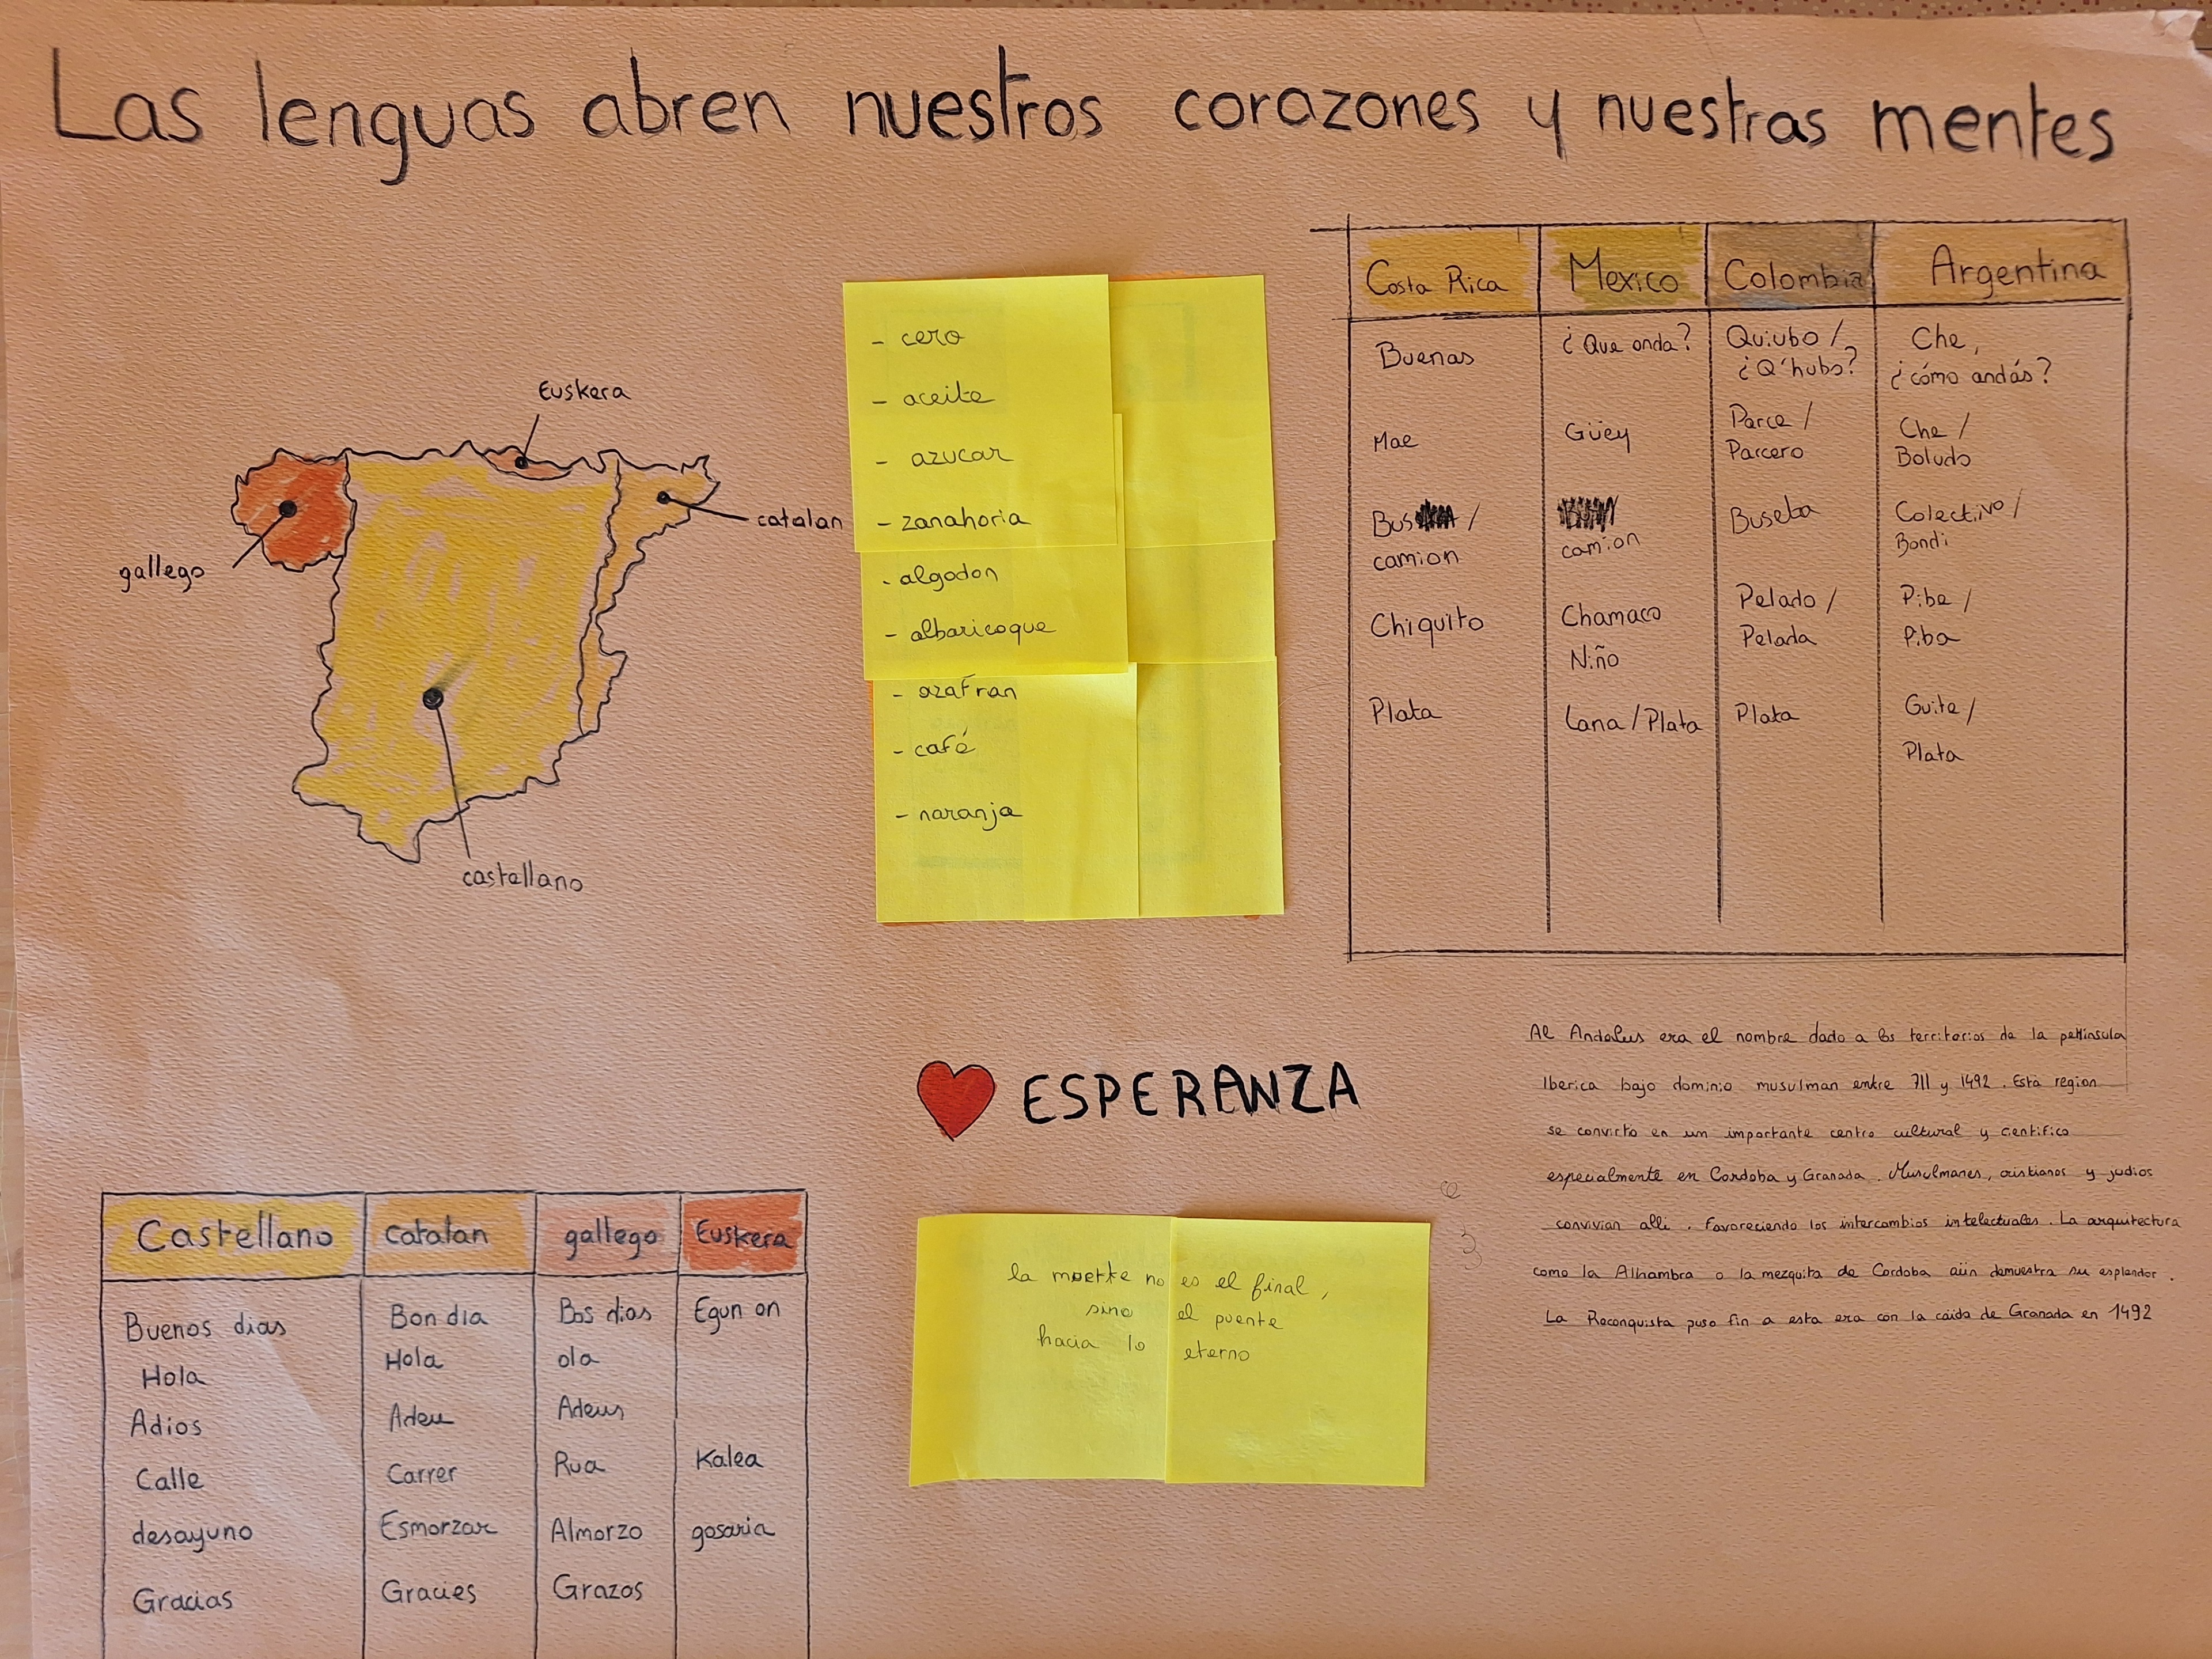 Las lenguas abren nuestros corazones y nuestras mentes
Euskera
catalan
gallego
castellano
- cero
- aceite
- azucar
- zanahoria
- algodon
- albaricoque
- azafran
- café
- naranja
Costa Rica Mexico Colombia Argentina
Buenas ¿Que onda? Quiubo / ¿Q'hubo? Che, ¿cómo andás?
Mae Güey Parce / Parcero Che / Boludo
Bus / camion camion Buseta Colectivo / Bondi
Chiquito Chamaco Niño Pelado / Pelada Pibe / Piba
Plata Lana / Plata Plata Guita / Plata
♥ ESPERANZA
Al Andalus era el nombre dado a los territorios de la peninsula
Iberica bajo dominio musulman entre 711 y 1492. Esta region
se convirto en un importante centro cultural y cientifico
especialmente en Cordoba y Granada. Musulmanes, cristianos y judios
convivian alli. Favoreciendo los intercambios intelectuales. La arquitectura
como la Alhambra o la mezquita de Cordoba aún demuestra su esplendor.
La Reconquista puso fin a esta era con la caida de Granada en 1492
la muerte no es el final,
sino el puente
hacia lo eterno
Castellano catalan gallego Euskera
Buenos dias Bon dia Bos dias Egun on
Hola Hola ola
Adios Adeu Adeus
Calle Carrer Rua Kalea
desayuno Esmorzar Almorzo gosaria
Gracias Gracies Grazos